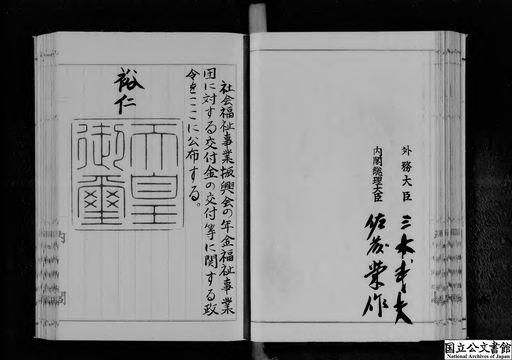 外務大臣 三木武夫
内閣総理大臣 佐藤榮作
社会福祉事業振興会の年金福祉事業
団に対する交付金の交付等に関する政
令をここに公布する。
裕仁
天皇
御璽
国立公文書館
National Archives of Japan